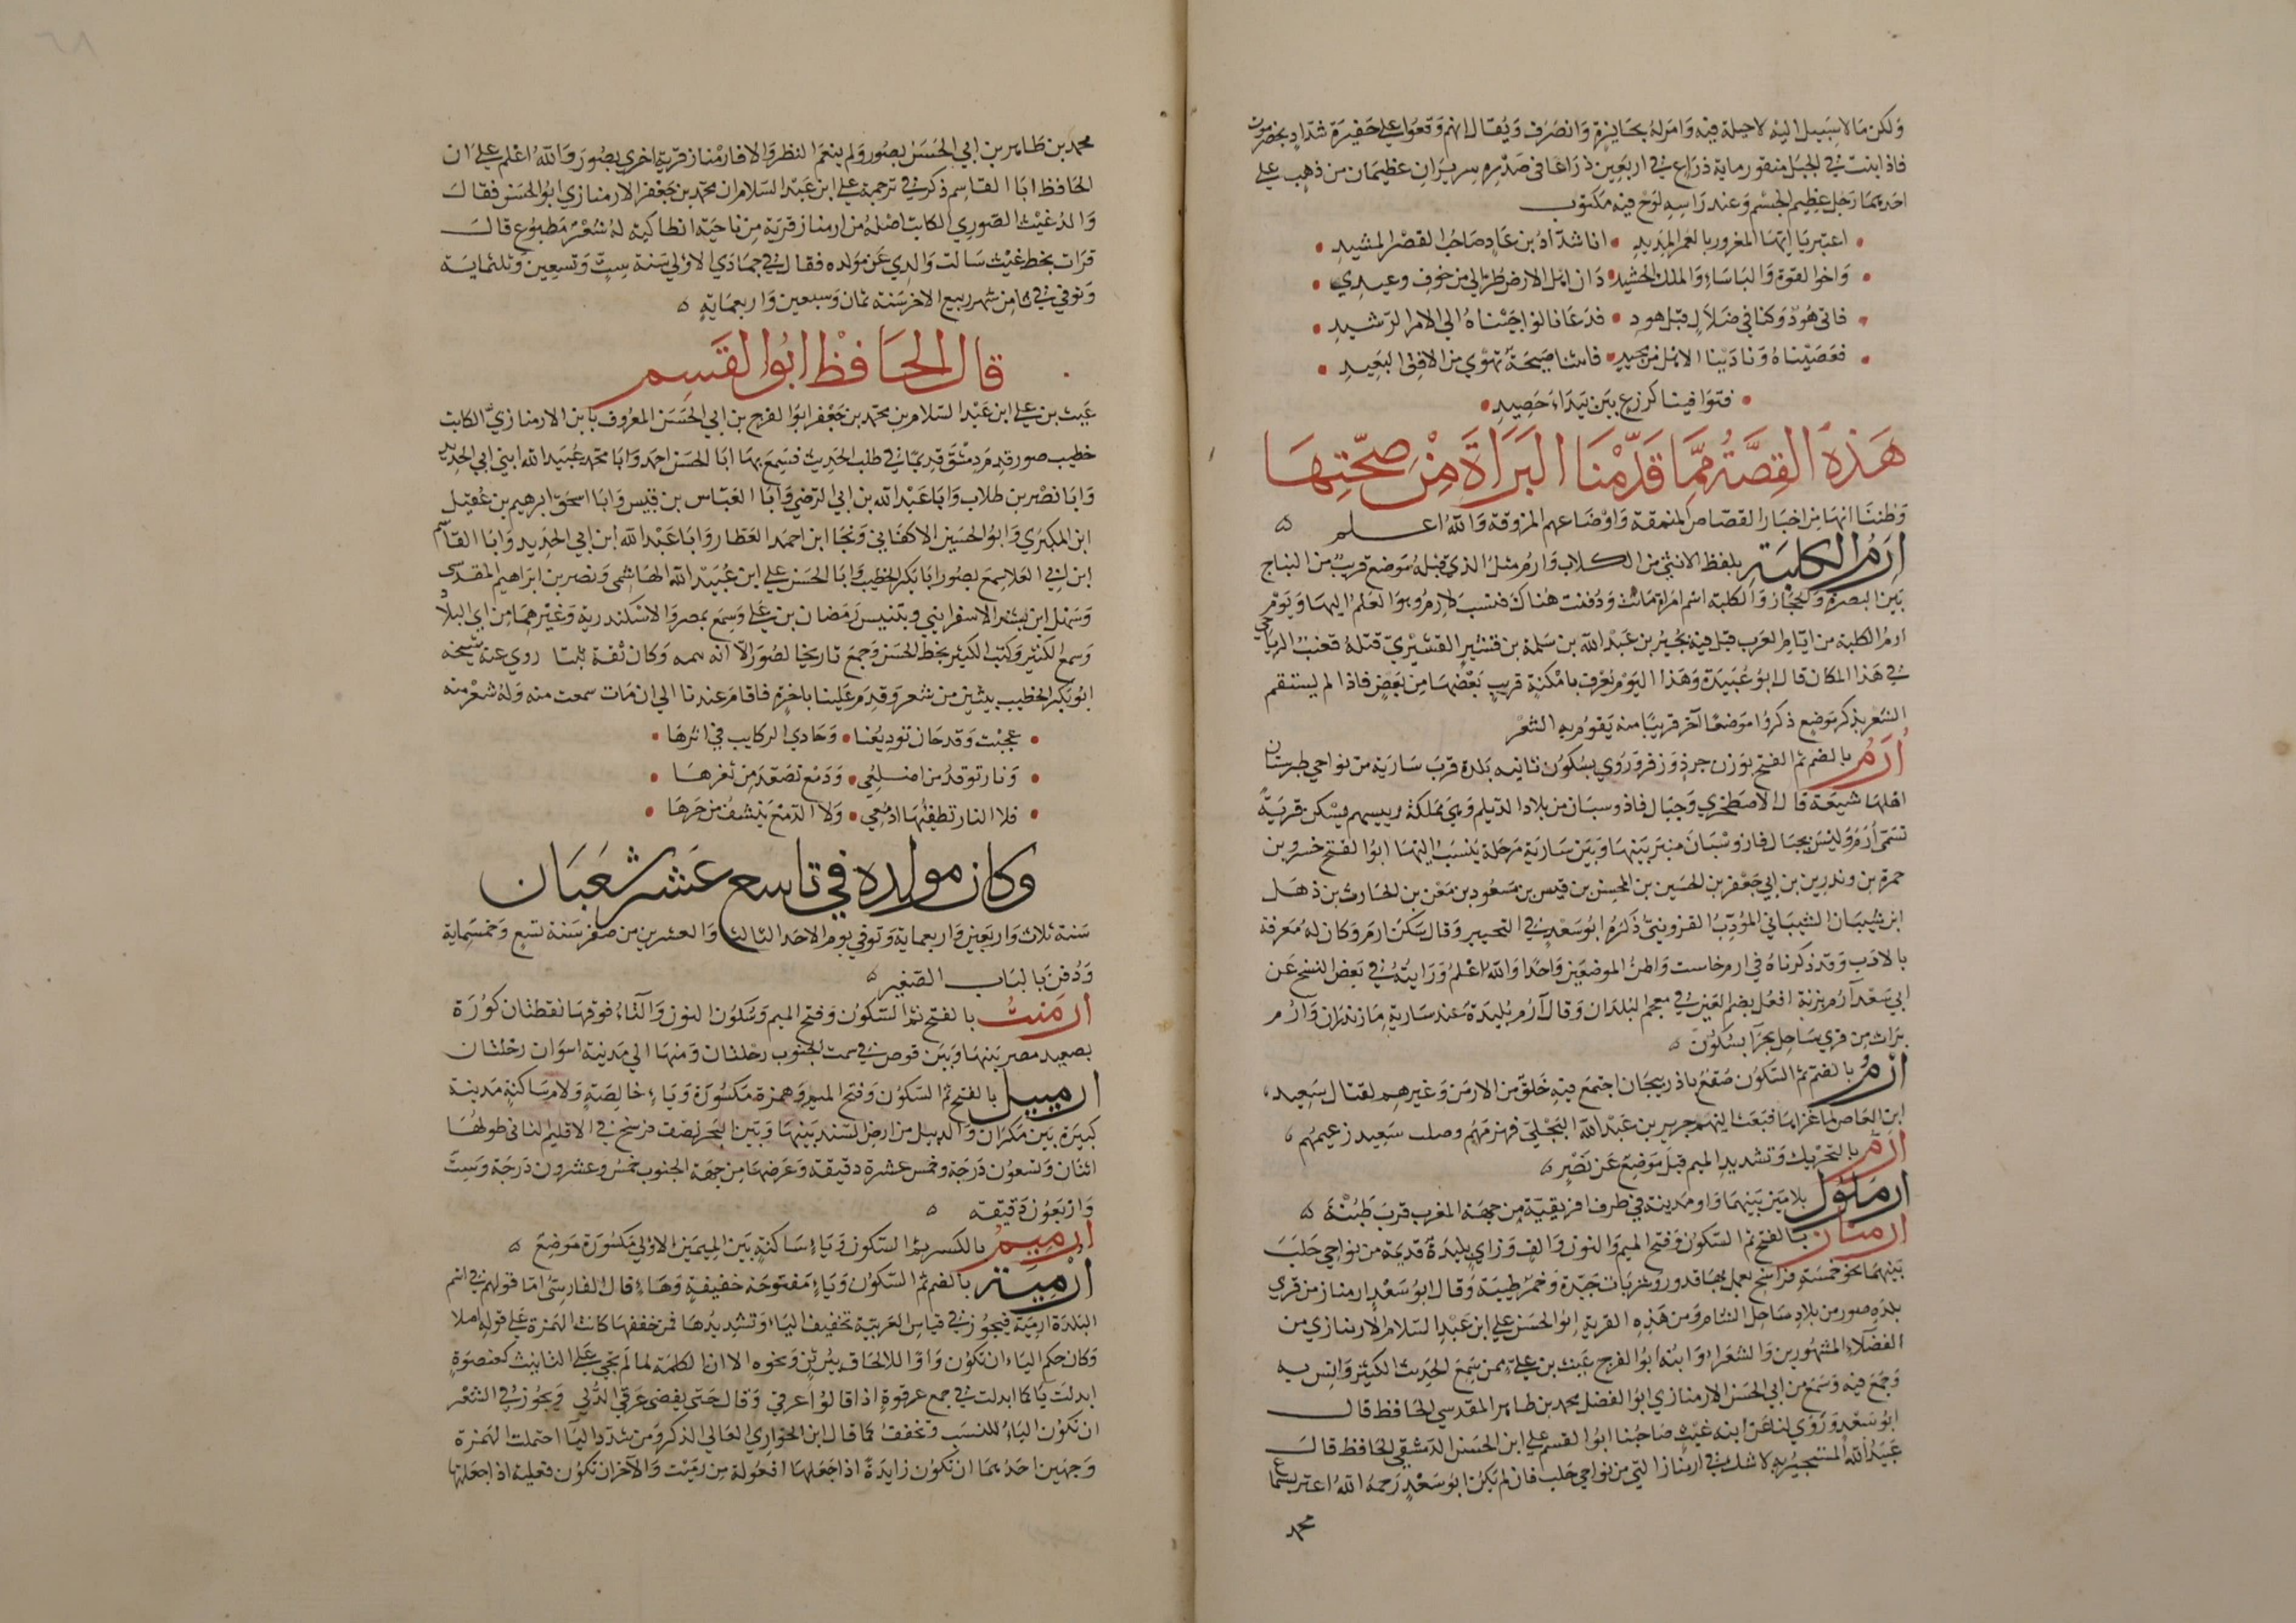 ولكن ما لا سبيل اليه لا حيلة فيه وامر له بجايزة وانصرف ويقال انهم وقعوا على حفيرة شداد بحضرموت
فاذا بيت في الجبل منقور مائة ذراع في اربعين ذراعا في صدره سريران عظيمان من ذهب على
احدهما رجل عظيم الجسم وعند راسه لوح فيه مكتوب
اعتبر يا ايها المغرور بالعمر المديد • انا شداد بن عاد صاحب القصر المشيد
واخو القوة والباساء والملك الحشيد • دان اهل الارض طرا لي من خوف وعيدي
فاتى هود وكنا في ضلال قبل هود • فدعانا لو اجبناه الى الامر الرشيد
فعصيناه ونادينا الا هل من محيد • فاتتنا صيحة تهوي من الافق البعيد
فتوافينا كزرع بين بيداء حصيد
هذه القصة مما قدمنا البراة من صحتها
وظننا انها من اخبار القصاص المنمقة واوضاعهم المزوقة والله اعلم
ارم الكلبة بلفظ الانثى من الكلاب وارم مثل الذي قبله موضع قريب من النباج
بين البصرة والحجاز والكلبة اسم امراة ماتت ودفنت هناك فنسب الارم وهو العلم اليها ويوم
ارم الكلبة من ايام العرب قتل فيه بجير بن عبد الله بن سلمة بن قشير القشيري قتله قعنب الرياحي
في هذا المكان قال ابو عبيدة وهذا اليوم يعرف بامكنة قريب بعضها من بعض فاذا لم يستقم
الشعر بذكر موضع ذكروا موضعا اخر قريبا منه يقوم به الشعر
أرم بالضم ثم الفتح بوزن جرذ وزفر وروي بسكون ثانيه بلدة قرب سارية من نواحي طبرستان
اهلها شيعة قال الاصطخري وجبال فاذوسبان من بلاد الديلم وهي مملكة ورييسهم يسكن قرية
تسمى أرم وليس بجبال فاذوسبان منبر بينها وبين سارية مرحلة ينسب اليها ابو الفتح خسرو بن
حمزة بن وندرين بن ابي جعفر بن الحسين بن المحسن بن قيس بن مسعود بن معن بن الحارث بن ذهل
ابن شيبان الشيباني المؤدب القزويني ذكره ابو سعد في التحبير وقال سكن ارم وكان له معرفة
بالادب وقد ذكرناه في ارم خاست واظن الموضعين واحدا والله اعلم ورايته في بعض النسخ عن
ابي سعد آرم بزنة افعل بضم العين في معجم البلدان وقال آرم بليدة عند سارية مازندران وآرم
برات من قرى ساحل بحر آبسكون
أرم بالضم ثم السكون صقع باذربيجان اجتمع فيه خلق من الارمن وغيرهم لقتال سعيد
ابن العاص لما غزاها فبعث اليهم جرير بن عبد الله البجلي فهزمهم وصلب سعيد زعيمهم
ارم بالتحريك وتشديد الميم قبل موضع عن نصر
ارملول بلامين بينهما واو مدينة في طرف افريقية من جهة المغرب قرب طبنة
ارمناز بالفتح ثم السكون وفتح الميم والنون والف وزاي بليدة قديمة من نواحي حلب
بينهما نحو خمسة فراسخ يعمل بها قدور وشربات جيدة وخمر طيبة وقال ابو سعد ارمناز من قرى
بلدة صور من بلاد ساحل الشام ومن هذه القرية ابو الحسن علي ابن عبد السلام الارمنازي من
الفضلاء المشهورين والشعراء وابنه ابو الفرج غيث بن علي ممن سمع الحديث الكثير وانس به
وجمع فيه وسمع من ابي الحسن الارمنازي ابو الفضل محمد بن طاهر المقدسي الحافظ قال
ابو سعد وروى لنا عن ابنه غيث صاحبنا ابو القسم علي ابن الحسن الدمشقي الحافظ قال
عبيد الله المستجير به لا شك في ارمناز التي من نواحي حلب فان لم يكن ابو سعد رحمه الله اغتر بسماع
محمد
محمد بن طاهر بن ابي الحسن بصور ولم ينعم النظر والا فارمناز قرية اخرى بصور والله اعلم على ان
الحافظ ابا القاسم ذكر في ترجمة علي ابن عبد السلام ان محمد بن جعفر الارمنازي ابو الحسن فقال
والد غيث الصوري الكاتب اصله من ارمناز قرية من ناحية انطاكية له شعر مطبوع قال
قرات بخط غيث سالت والدي عن مولده فقال في جمادى الاولى سنة ست وتسعين وثلثماية
وتوفي في ثامن شهر ربيع الاخر سنة ثمان وسبعين واربعماية
قال الحافظ ابو القسم
غيث بن علي ابن عبد السلام بن محمد بن جعفر ابو الفرج بن ابي الحسن المعروف بابن الارمنازي الكاتب
خطيب صور قدم دمشق قديما في طلب الحديث فسمع بها ابا الحسن احمد وابا محمد عبيد الله ابني ابي الحديد
وابا نصر بن طلاب وابا عبد الله بن ابي الرضي وابا العباس بن قبيس وابا اسحق ابرهيم بن عقيل
ابن المكبري وابو الحسين الاكفاني ونجا ابن احمد العطار وابا عبد الله ابن ابي الحديد وابا القاسم
ابن ابي العلا سمع بصور ابا بكر الخطيب وابا الحسن علي ابن عبيد الله الهاشمي ونصر بن ابراهيم المقدسي
وسهل ابن بشر الاسفرايني وبتنيس رمضان بن علي وسمع بمصر والاسكندرية وغيرهما من البلاد
وسمع الكثير وكتب الكثير بخط الحسن وجمع تاريخا لصور الا انه وكان ثقة ثبتا روى عنه شيخه
ابو بكر الخطيب بيتين من شعره وقدم علينا باخرة فاقام عندنا الى ان مات سمعت منه وله شعر منه
عجبت وقد حان توديعنا • وحادي الركايب في اثرها
ونار توقد من اضلعي • ودمع تصعد من ثغرها
فلا النار تطفئها ادمعي • ولا الدمع ينشف من حرها
وكان مولده في تاسع عشر شعبان
سنة ثلاث واربعين واربعماية وتوفي يوم الاحد الثالث والعشرين من صفر سنة تسع وخمسماية
ودفن بالباب الصغير
ارمنت بالفتح ثم السكون وفتح الميم وسكون النون والتاء فوقها نقطتان كورة
بصعيد مصر بينها وبين قوص في سمت الجنوب رحلتان ومنها الى مدينة اسوان رحلتان
ارمييل بالفتح ثم السكون وفتح الميم وهمزة مكسورة وياء خالصة ولام ساكنة مدينة
كبيرة بين مكران والديبل من ارض السند بينها وبين البحر نصف فرسخ في الاقليم الثاني طولها
اثنان وتسعون درجة وخمس عشرة دقيقة وعرضها من جهة الجنوب خمس وعشرون درجة وست
واربعون دقيقة
إرميم بالكسر ثم السكون وياء ساكنة بين الميمين الاولى مكسورة موضع
أرمية بالضم ثم السكون وياء مفتوحة خفيفة وهاء قال الفارسي اما قولهم في اسم
البلدة ارمية فيجوز في قياس العربية تخفيف الياء وتشديدها فمن خففها كانت الهمزة على قوله اصلا
وكان حكم الياء ان تكون واوا للالحاق ببرثن ونحوه الا ان الكلمة لما لم تجئ على التانيث كعنصوة
ابدلت ياء كما ابدلت في جمع عرقوة اذا قالوا عرقي وقال حتى يفضي عرقي الدلي ويجوز في الشعر
ان تكون الياء للنسب وتخفف كما قال ابن الحواري العالي الذكر ومن شدد الياء احتملت الهمزة
وجهين احدهما ان تكون زايدة اذا جعلتها افعولة من رميت والاخر ان تكون فعلية اذا جعلتها